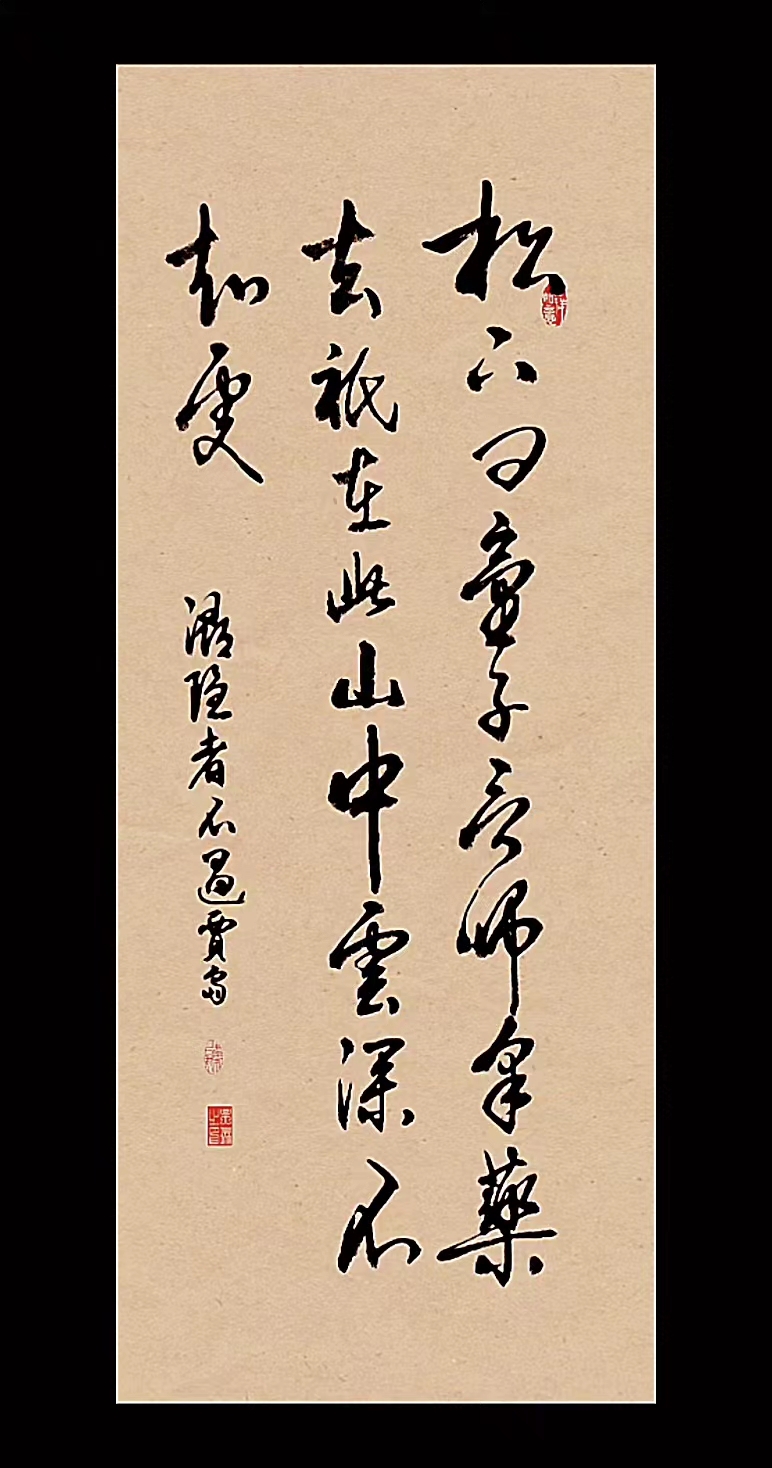 松下问童子言师采藥
去祇在此山中雲深不
知處
尋隐者不遇賈島